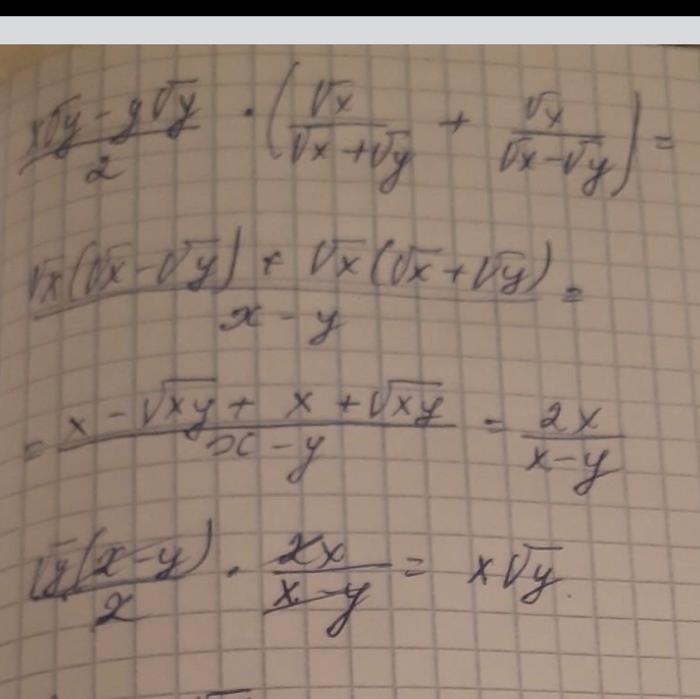 (x√y - y√y)/2 · (√x/(√x + √y) + √x/(√x - √y)) =
(√x(√x - √y) + √x(√x + √y))/(x - y) =
= (x - √xy + x + √xy)/(x - y) = 2x/(x - y)
√y(x - y)/2 · 2x/(x - y) = x√y.